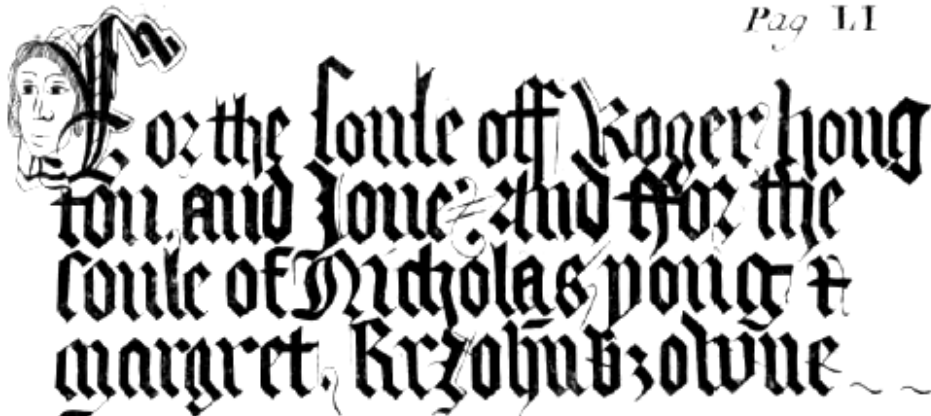 Pag LI
For the soule off Roger houg
ton. and Jone: And ffor the
soule of Nicholas yong &
margret.